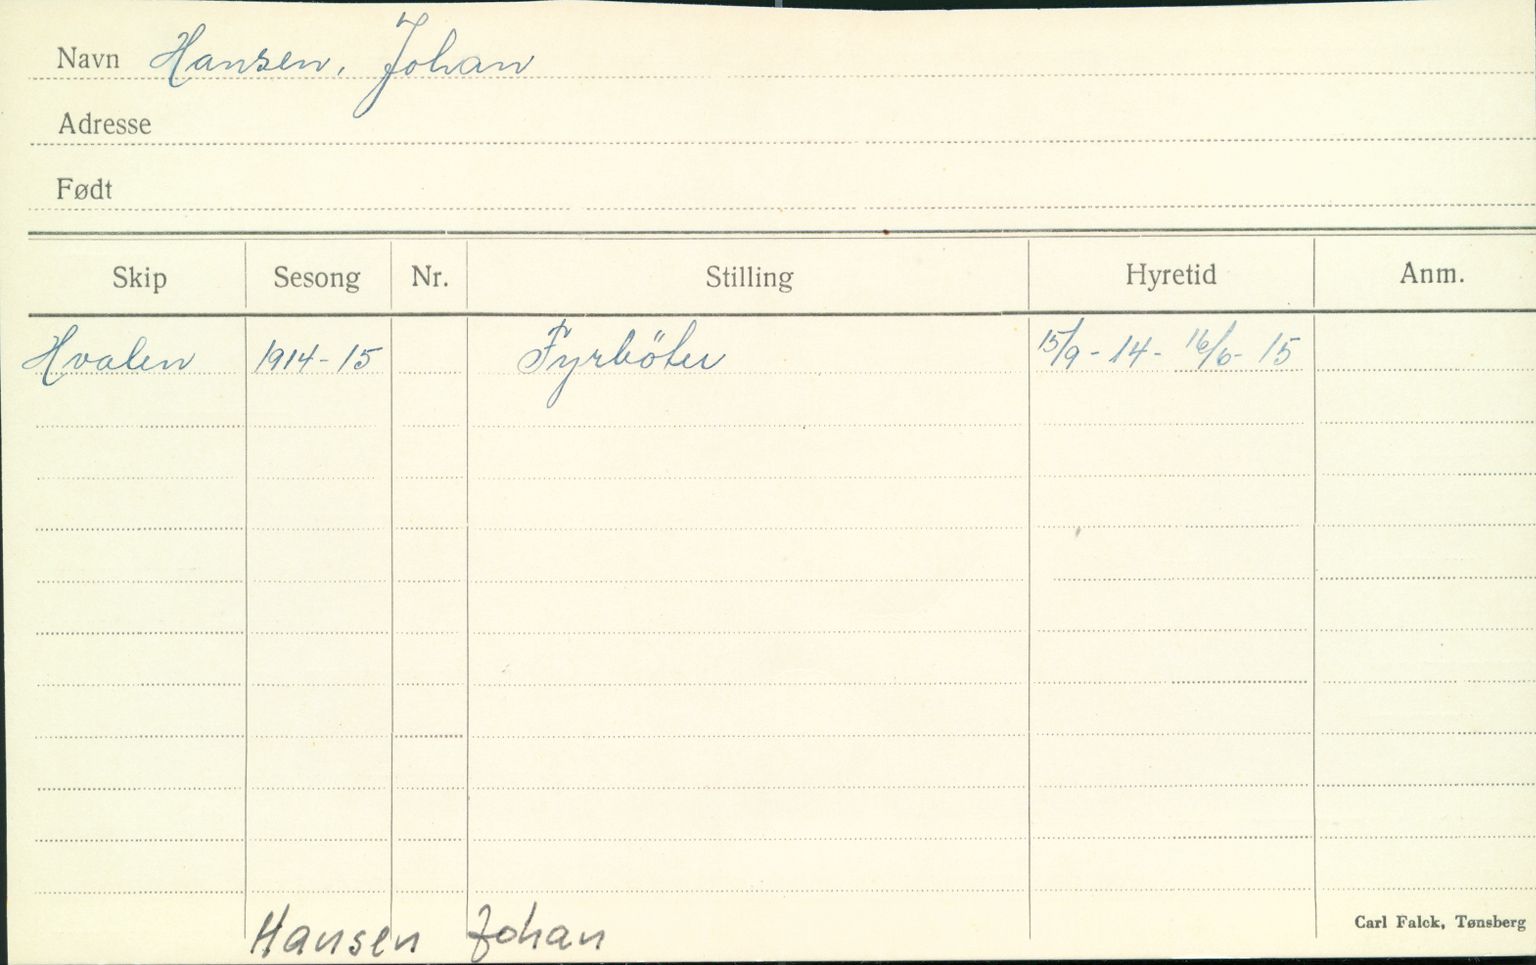 Navn Hansen, Johan
Adresse
Født
Skip Sesong Nr. Stilling Hyretid Anm.
Hvalen 1914-15 Fyrböter 15/9-14- 16/6-15
Hansen Johan
Carl Falck, Tønsberg